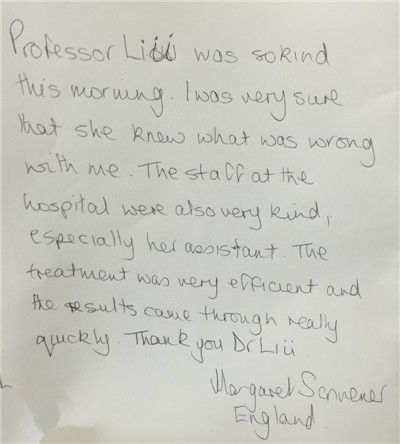 Professor Liiii was so kind
this morning. I was very sure
that she knew what was wrong
with me. The staff at the
hospital were also very kind,
especially her assistant. The
treatment was very efficient and
the results came through really
quickly. Thank you Dr Liii
Margaret Scrivener
England.
L